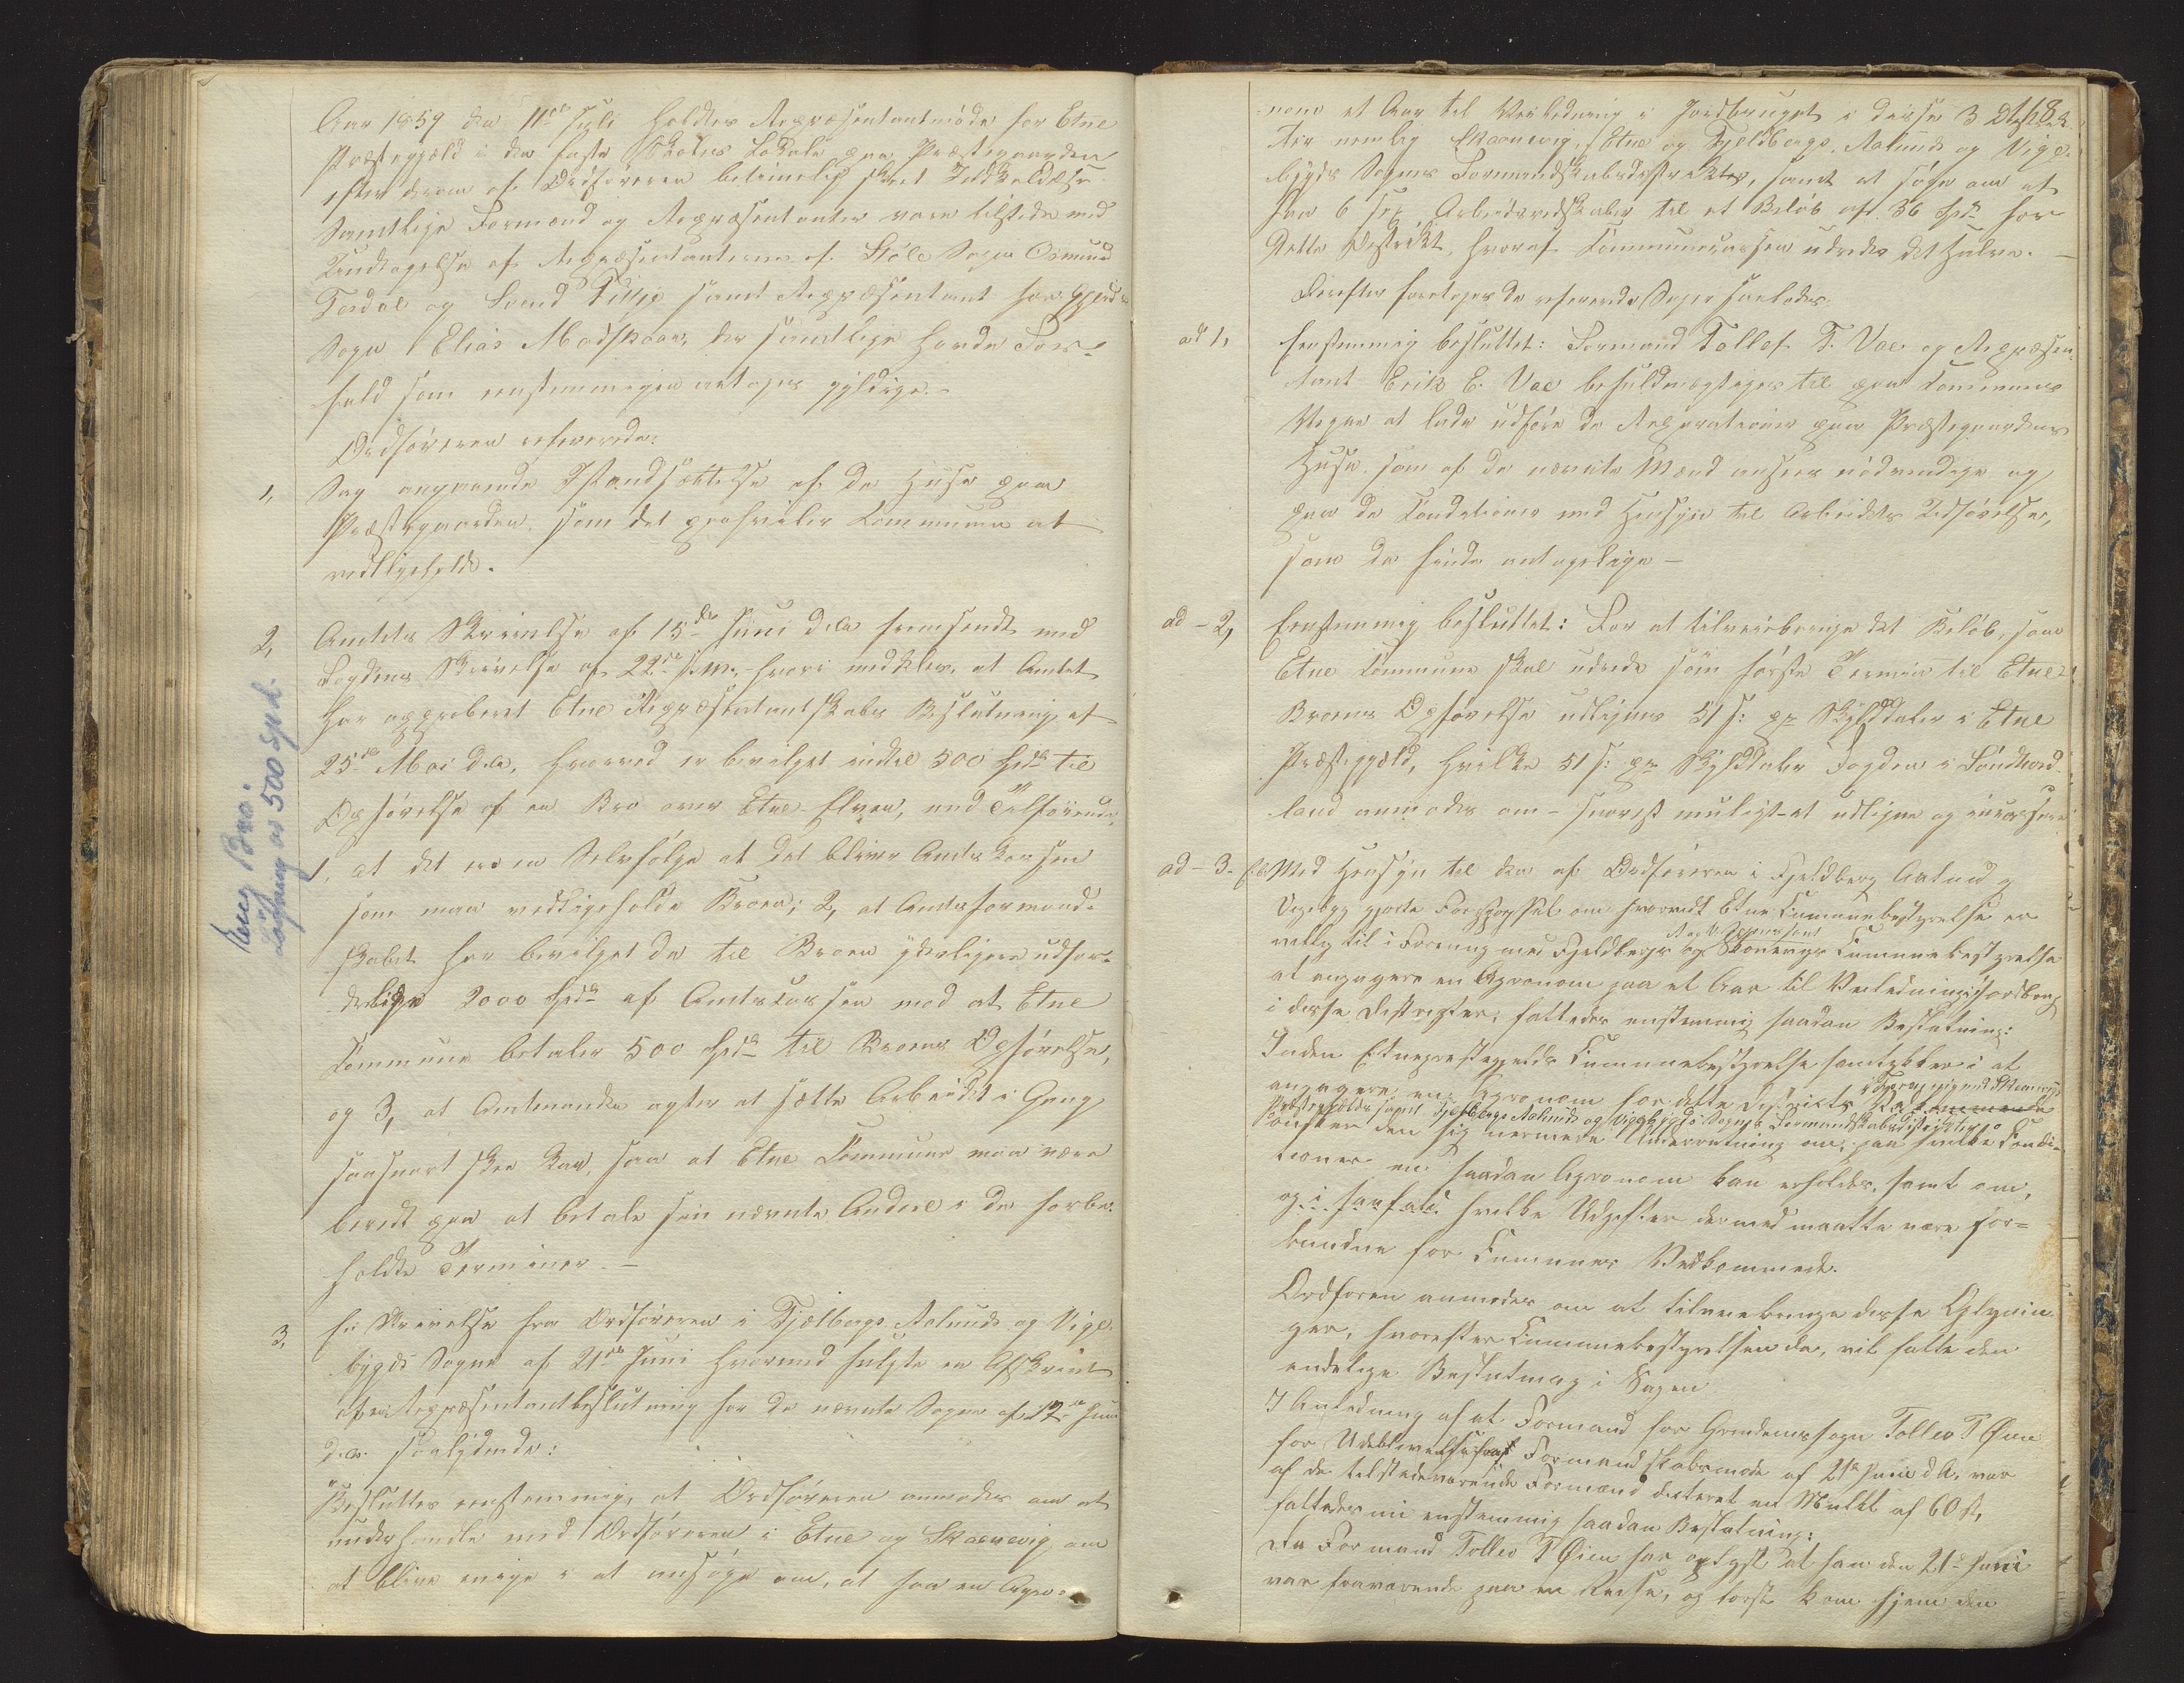 Aar 1859 den 11te Juli holdtes Repræsentantmöde for Etne
Præstegjæld i den faste Skoles Lokale paa Præstegaarden
efter derom af Ordföreren betimelig skeet Indkaldelse.
Samtlige Formænd og Repræsentanter vare tilstede med
Undtagelse af Repræsentanterne af Stöle Sogn Osmund
Tesdal og Svend Fitje samt Repræsentant for Gjerde
Sogn Elias Mosdskaar, der samtlige havde For-
fald som eenstemmigen antoges gyldige.-
Ordföreren refererede:
1, Sag angaaende Istandsættelse af de Huse paa
Præstegaarden, som det paahviler Kommunen at
vedligeholde.
2, Amtets Skrivelse af 15de Juni d.A. fremsendt med
Fogdens Skrivelse af 22de s.M., hvori meddeles, at Amtet
har approberet Etne Repræsentantskabs Beslutning af
25de Mai d.A., hvorved er bevilget indtil 500 Spd. til
Opförelse af en Bro over Etne-Elven, med Tilföiende,
1, at det er en Selvfölge at det bliver Amtskassen
som maa vedligeholde Broen; 2, at Amtsformand-
skabet har bevilget de til Broen yderligere udfor-
derlige 2000 Spd. af Amtskassen mod at Etne
Kommune betaler 500 Spd. til Broens Opförelse,
og 3, at Amtmanden agter at sætte Arbeidet i Gang
saasnart skee kan, saa at Etne Kommune maa være
beredt paa at betale sin nævnte Andeel i de forbe-
holdte Terminer.-
Bro.
500 Spd.
3, En Skrivelse fra Ordföreren i Fjelbergs Aalunds og Vige-
bygds Sogne af 21de Juni hvormed fulgte en Afskrivt
af en Repræsentantbeslutning for de nævnte Sogne af 17de Juni
d.A. saalydende:
"Besluttes eenstemmig, at Ordföreren anmodes om at
underhandle med Ordföreren i Etne og Skaanevig om
at blive enige i at ansöge om, at faa en Agro-
nom et Aar til Veiledning i Jordbruget i disse 3 Distrik-
ter nemlig Skaanevig, Etne og Fjeldbergs, Aalunds og Vige-
bygds Sognes Formandskabsdistrikter, samt at söge om at
faa 6 Arbeidsredskaber til et Belöb af 36 Spd. for
dette Distrikt, hvoraf Kommunecassen udreder det Halve.-
Derefter foretoges de refererede Sager saaledes:
ad 1, Eenstemmig besluttet: Formand Tollef T. Vae og Repræsen-
tant Erik E. Vae befuldmægtiges til paa Kommunens
Vegne at lade udföre de Reparationer paa Præstegaardens
Huse, som af de nævnte Mænd ansees nödvendige og
paa de Conditioner med Hensyn til Arbeidets Udförelse,
som de finde antagelige-
ad-2, Eenstemmig besluttet: For at tilveiebringe det Belöb, som
Etne Kommune skal udrede som förste Termin til Etne-
Broens Opförelse udlignes 51 s: pr Skylddaler i Etne
Præstegjæld, hvilke 51 s: pr Skylddaler Fogden i Söndhord-
land anmodes om - snarest muligt - at udligne og incassere
ad-3. Med Hensyn til den af Ordföreren i Fjeldberg Aalund og
Vigebygd gjorte Forespörgsel om hvorvidt Etne Kummunebestyrelse er
villig til i Forening med Fjeldbergs og Skonevigs Kummunebestyrelse
at engagere en Agronom paa et Aar til Veiledning i Jordbrug
i disse Districter, fattedes enstemmig saadan Beslutning:
Inden Etnepræstegjelds Kummunebestyrelse samtykker i at
engagere en Agronom for dette District i Forening med Skonevigs
Præstegjelds samt Fjelbergs Aalunds og Vigebygds Sognes Formandskabsdistrikter
önsker den sig nermere Underretning om, paa hvilke Kondi-
tioner en saadan Agronom kan erholdes, samt om,
og i saafald, hvilke Udgifter dermed maatte være for-
bundne for Kummunes Vedkommende.
Ordforen anmodes om at tilveiebringe disse Oplysnin-
ger, hvorefter Kummunebestyrelsen da, vil fatte den
endelige Beslutning i Sagen
I Anledning af at Formand for Grindemssogn Tollev T Øien
for Udeblivelse fra Formandskabsmøde af 21de Juni d.A. var
af de tilstedeværende Formænd dicteret en Mulkt af 60 s,
fattedes nu enstemmig saadan Beslutning:
Da Formand Tollev T Øien har oplyst at han den 21de Juni
var fraværende paa en Reise, og først kom hjem den